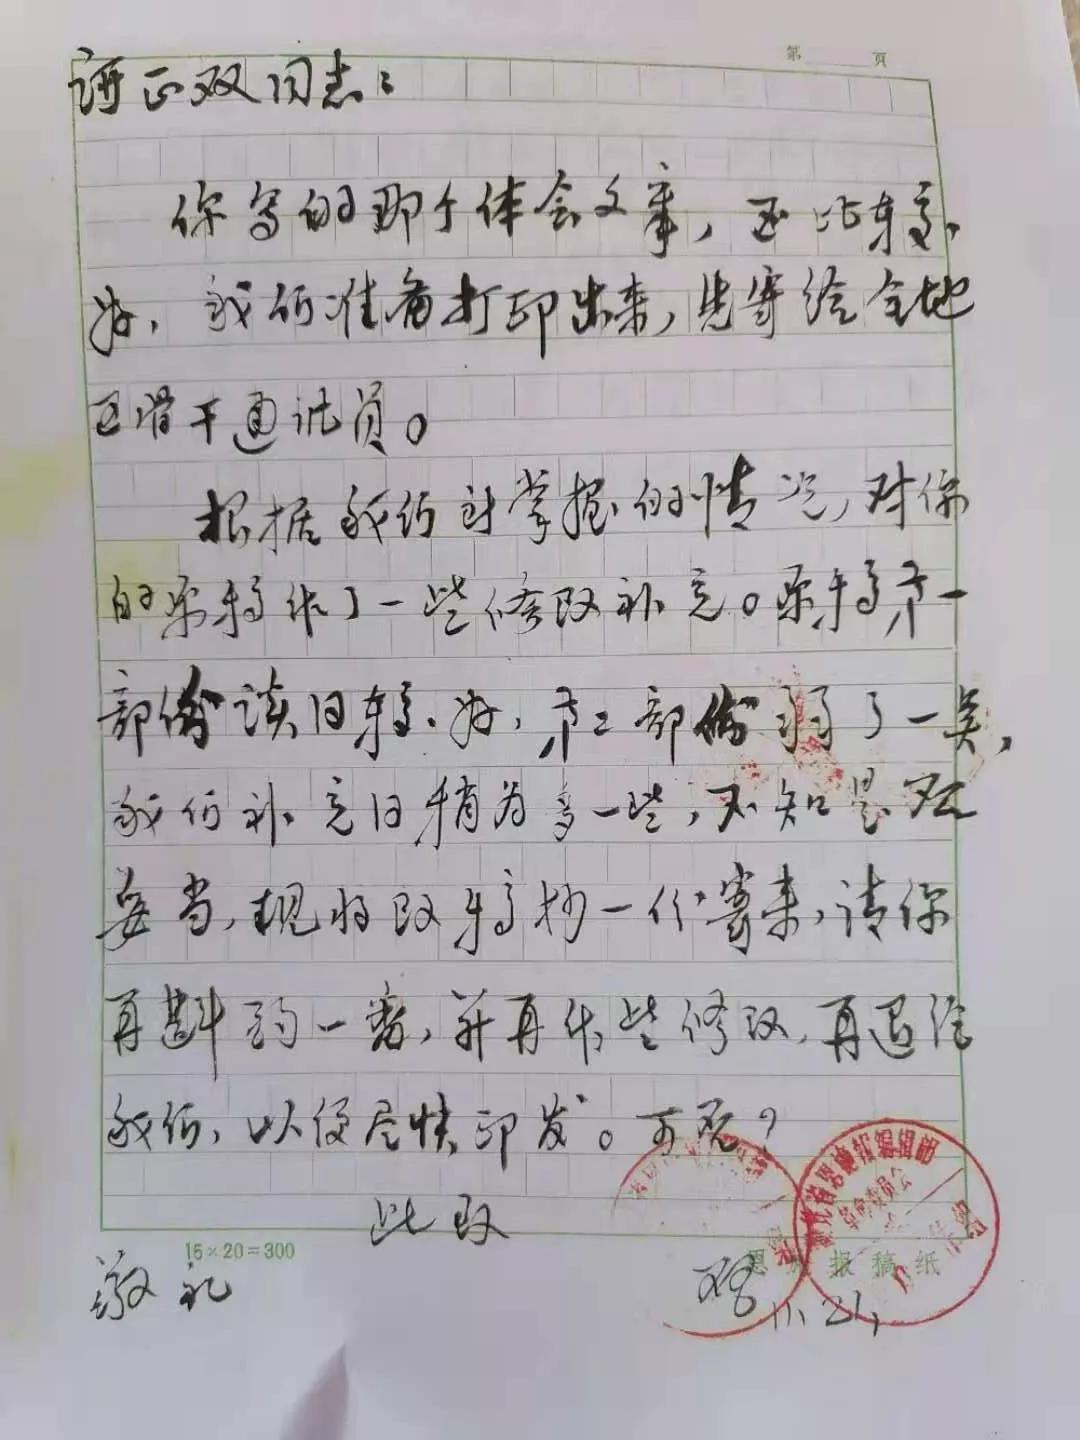 第 页
正双同志：
你写的那个体会文章，还比较
好，我们准备打印出来，先寄给全地
区骨干通讯员。
根据我们所掌握的情况，对你
的原稿作了一些修改补充。原稿第一
部份谈得较好，第二部份弱了一点，
我们补充得稍为多一些，不知是否
妥当，现将改稿抄一份寄来，请你
再斟酌一番，并再作些修改，再退给
我们，以便尽快印发。可否？
此致
15×20=300
恩 报稿纸
敬礼
11.21,
湖北省恩施报编辑部
革命委员会